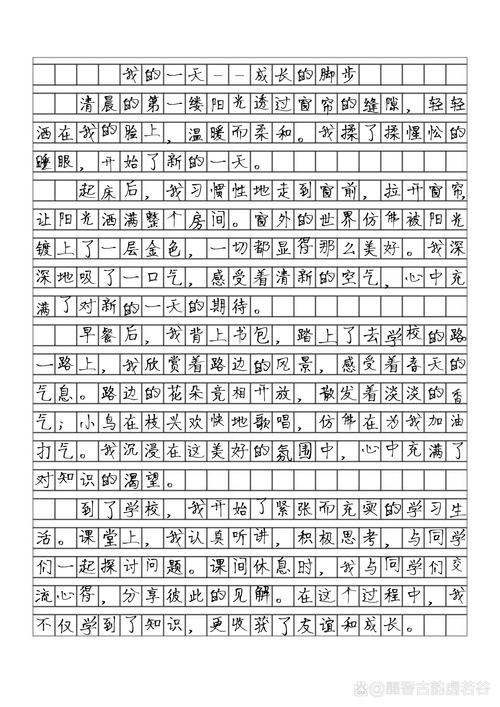 我的一天——成长的脚步
清晨的第一缕阳光透过窗帘的缝隙，轻轻
洒在我的脸上，温暖而柔和。我揉了揉惺忪的
睡眼，开始了新的一天。
起床后，我习惯性地走到窗前，拉开窗帘，
让阳光洒满整个房间。窗外的世界仿佛被阳光
镀上了一层金色，一切都显得那么美好。我深
深地吸了一口气，感受着清新的空气，心中充
满了对新的一天的期待。
早餐后，我背上书包，踏上了去学校的路。
一路上，我欣赏着路边的风景，感受着春天的
气息。路边的花朵竞相开放，散发着淡淡的香
气；小鸟在枝头欢快地歌唱，仿佛在为我加油
打气。我沉浸在这美好的氛围中，心中充满了
对知识的渴望。
到了学校，我开始了紧张而充实的学习生
活。课堂上，我认真听讲，积极思考，与同学
们一起探讨问题。课间休息时，我与同学们交
流心得，分享彼此的见解。在这个过程中，我
不仅学到了知识，更收获了友谊和成长。